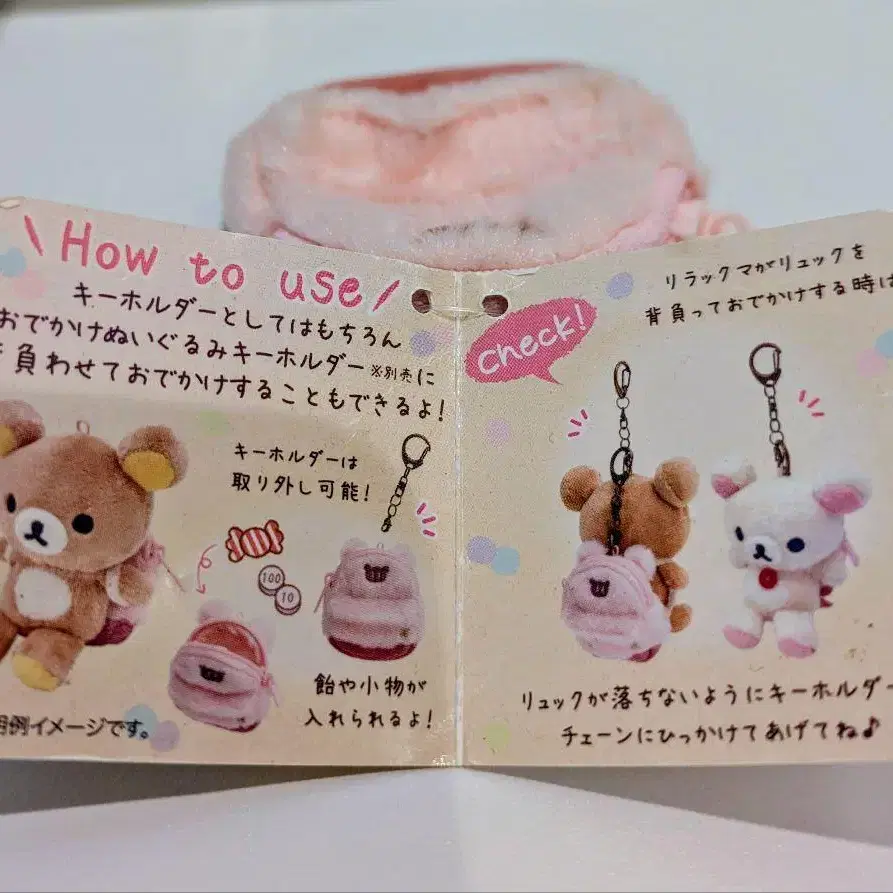 How to use
キーホルダーとしてはもちろん
おでかけぬいぐるみキーホルダー※別売に
背負わせておでかけすることもできるよ!
キーホルダーは
取り外し可能!
100
10
飴や小物が
入れられるよ!
用例イメージです。
Check!
リラックマがリュックを
背負っておでかけする時は
リュックが落ちないようにキーホルダー
チェーンにひっかけてあげてね♪